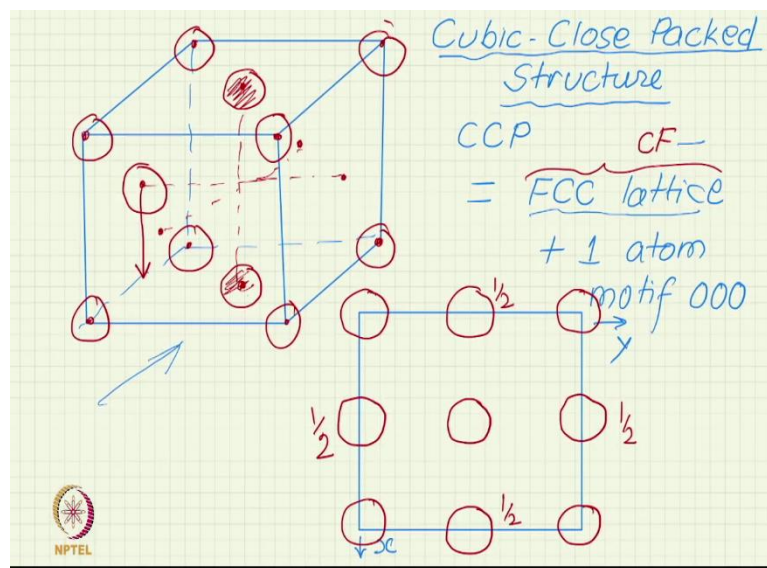 Cubic-Close Packed
Structure
CCP cF—
= FCC lattice
+ 1 atom
motif 000
1/2
y
1/2
1/2
1/2
x
NPTEL